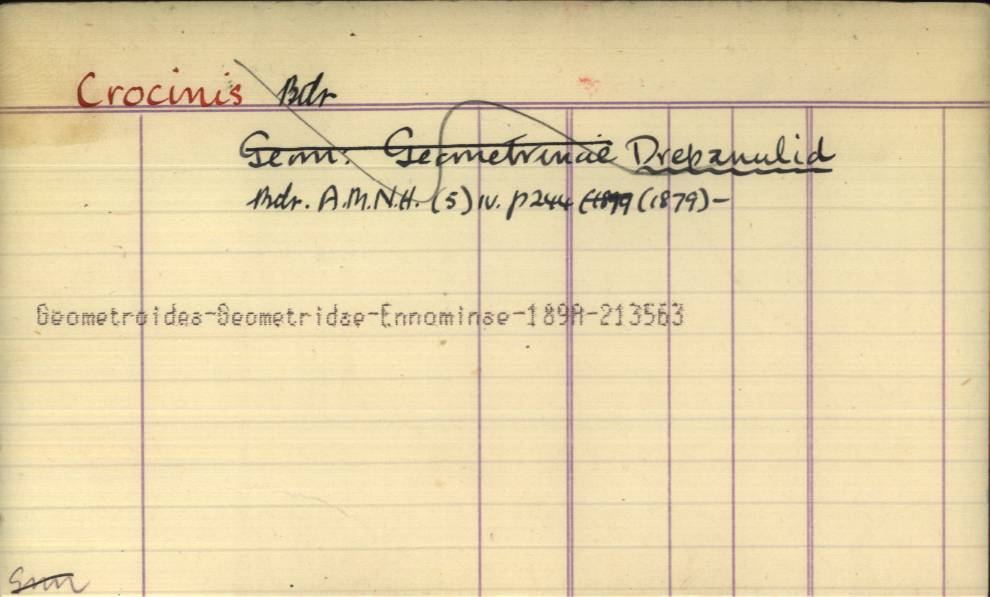 Crocinis Bdr
Geom: Geometrinae Drepanulid
Bdr. A.M.N.H. (5) IV. p 244 (1879) –
Geometroidea-Geometridae-Ennominae-189A-213563